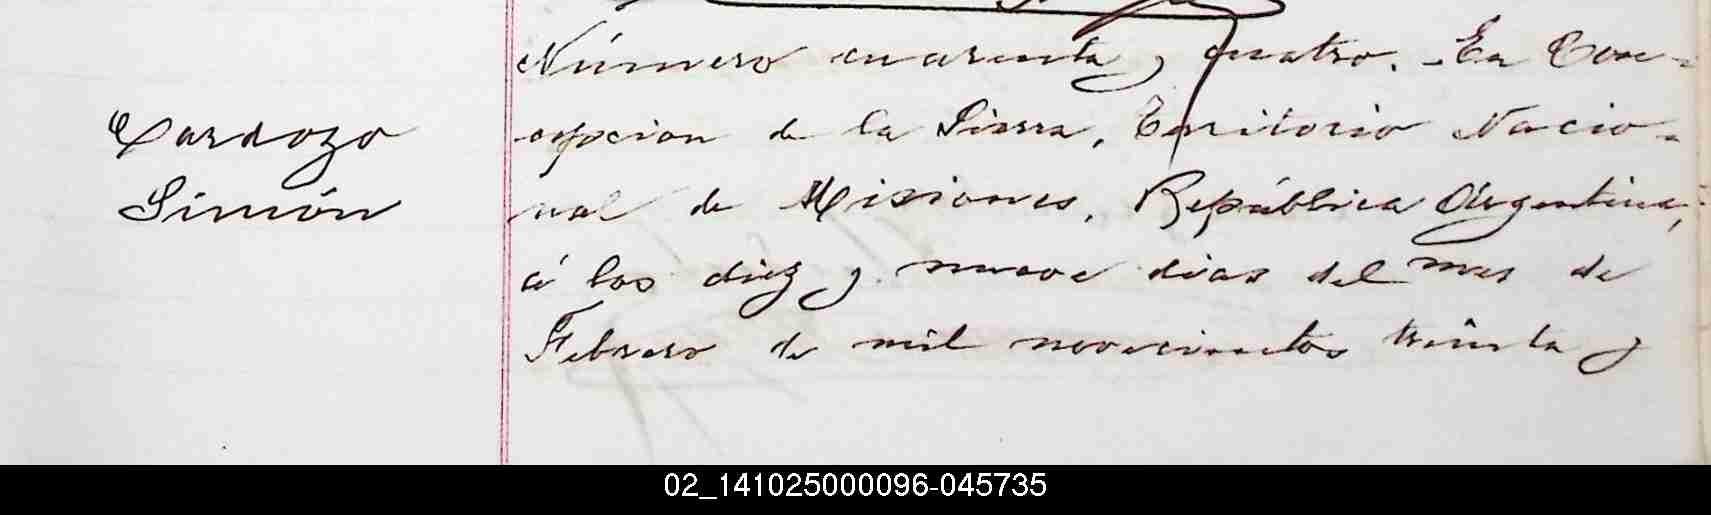 Cardozo
Simón
Número cuarenta y cuatro. - En Con-
cepcion de la Sierra, Territorio Nacio-
nal de Misiones, República Argentina,
á los diez y nueve dias del mes de
Febrero de mil novecientos treinta y
02_141025000096-045735